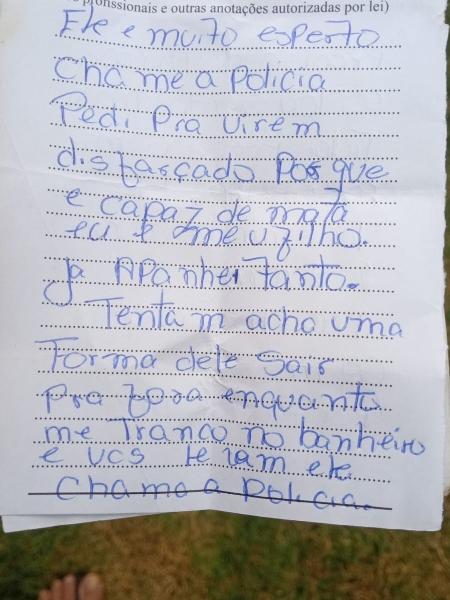 profissionais e outras anotações autorizadas por lei)
Ele e muito esperto
Chame a Policia
Pedi Pra Virem
disfarçado Porque
e capaz de mata
eu e meu filho.
ja APanhei tanto.
Tenta m acho uma
Forma dele Sair
Pra fora enquanto
me Tranco no banheiro
e vcs ele
Chama a Policia.